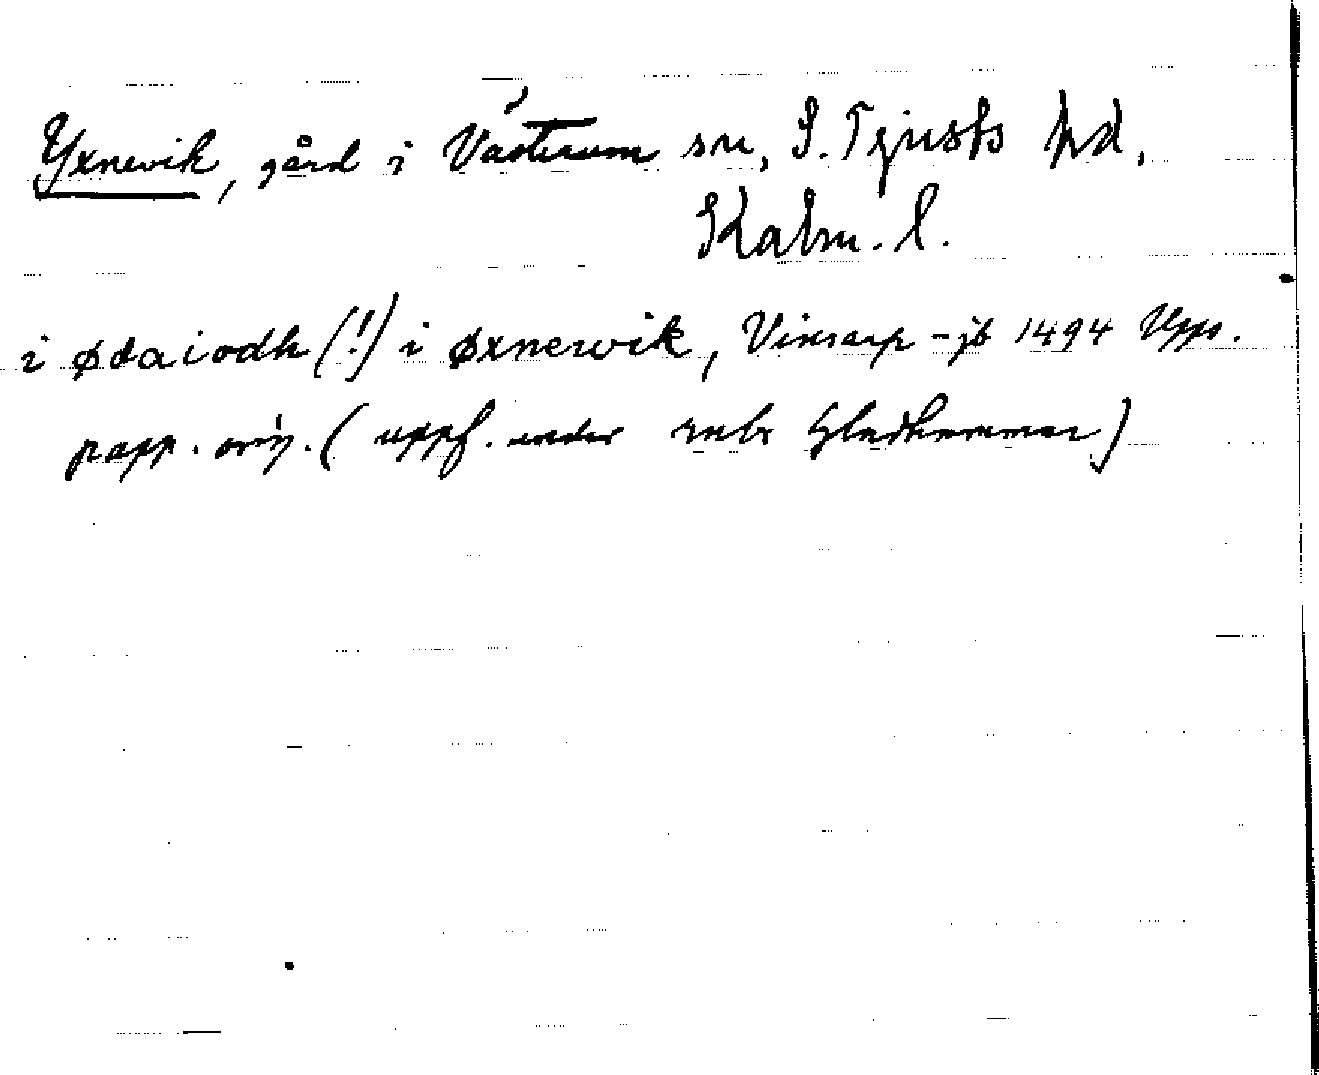 Yxnevik, gård i Västrum sn, S. Tjusts hd,
Kalm. l.
i ødaiodh (!) i øxnewik, Vinsarp-jb 1494 Upps.
papp. orig. (uppf. under rubr Gladhammar)